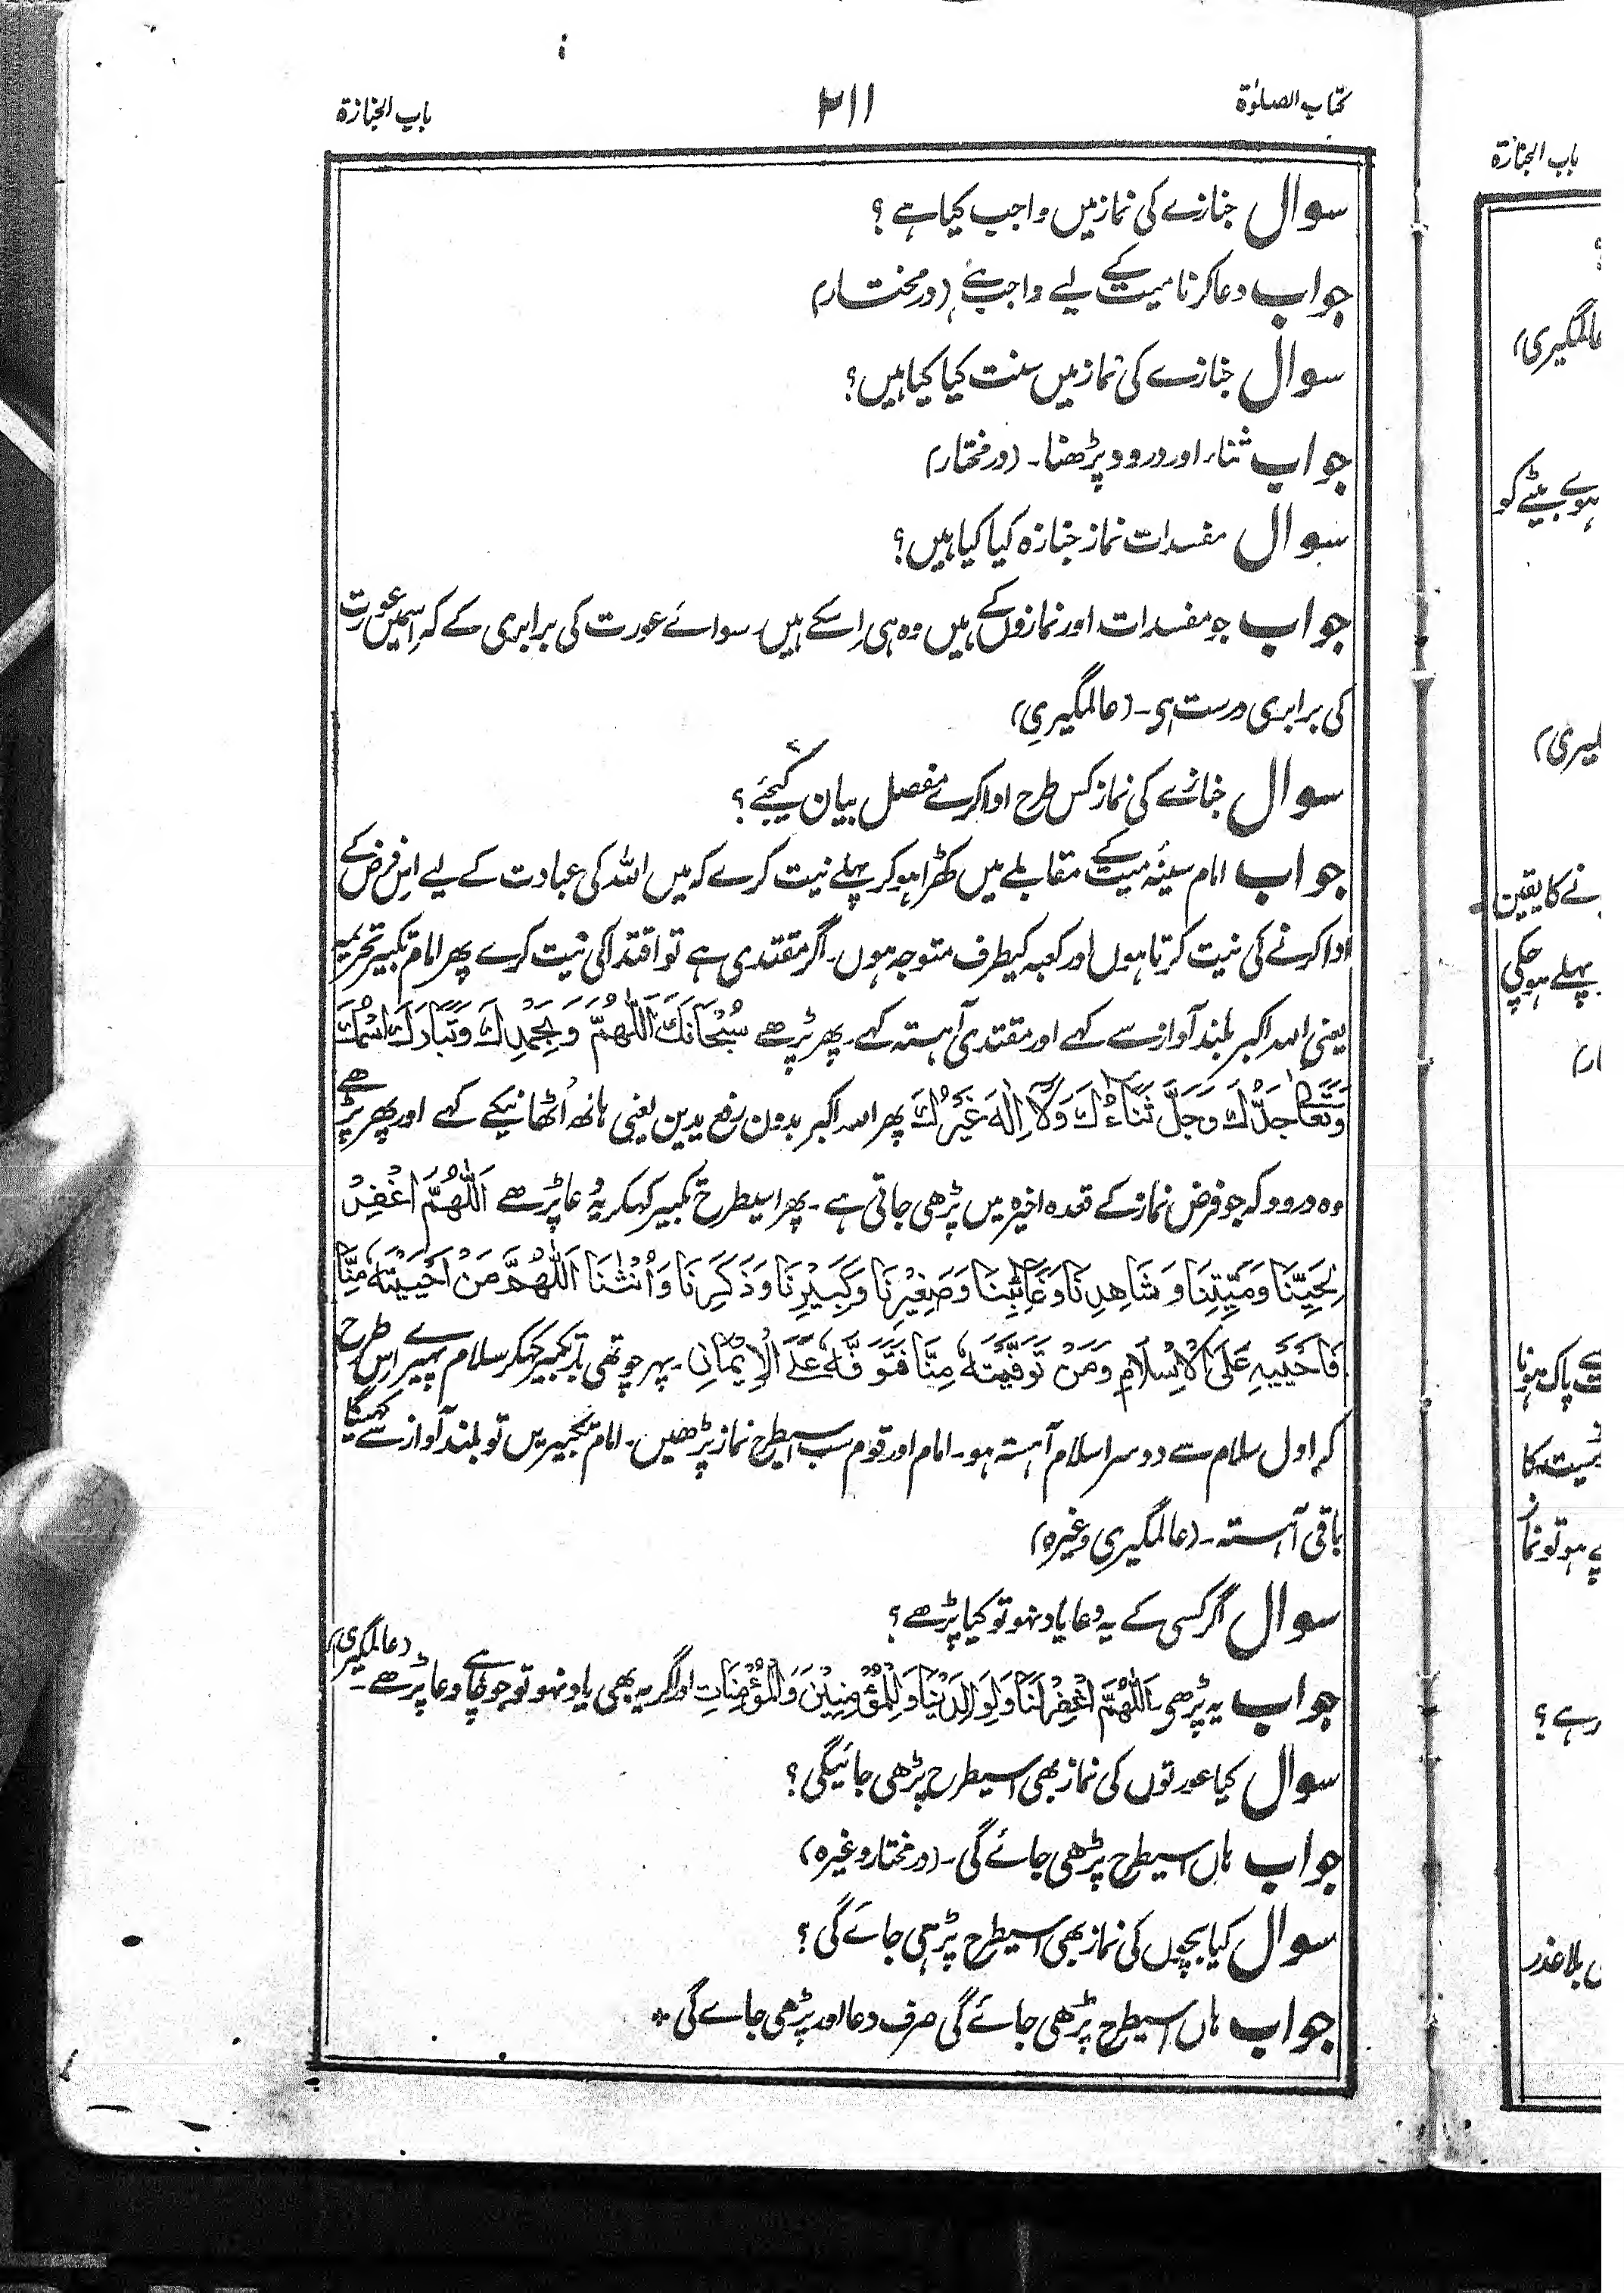 کتاب الصلوٰة
۲۱۱
باب الجنازة
سوال جنازے کی نماز میں واجب کیا ہے ؟
جواب دعا کرنا میت کے لیے واجب ہے (درمختار)
سوال جنازے کی نماز میں سنت کیا کیا ہیں ؟
جواب ثناء اور درود پڑھنا ۔ (درمختار)
سوال مفسدات نماز جنازہ کیا کیا ہیں ؟
جواب جو مفسدات اور نمازوں کے ہیں وہ ہی اسکے ہیں سوائے عورت کی برابری کے کہ اسمیں عورت
کی برابری درست ہی ۔ (عالمگیری)
سوال جنازے کی نماز کس طرح ادا کرے مفصل بیان کیجئے ؟
جواب امام سینۂ میت کے مقابلے میں کھڑا ہو کر پہلے نیت کرے کہ میں اللہ کی عبادت کے لیے اس فرض کے
ادا کرنے کی نیت کرتا ہوں اور کعبہ کیطرف متوجہ ہوں ۔ اگر مقتدی ہے تو اقتدا کی نیت کرے پھر امام تکبیر تحریمہ
یعنی اللہ اکبر بلند آواز سے کہے اور مقتدی آہستہ کہے ۔ پھر پڑھے سُبْحَانَكَ اَللّٰهُمَّ وَبِحَمْدِكَ وَتَبَارَكَ اسْمُكَ
وَتَعَالٰى جَدُّكَ وَجَلَّ ثَنَاءُكَ وَلَا اِلٰهَ غَيْرُكَ پھر اللہ اکبر بدون رفع یدین یعنی ہاتھ اُٹھانیکے کہے اور پھر پڑھے
وہ درود کہ جو فرض نماز کے قعدہ اخیرہ میں پڑھی جاتی ہے ۔ پھر اسیطرح تکبیر کہکر یہ دعا پڑھے اَللّٰهُمَّ اغْفِرْ
لِحَيِّنَا وَمَيِّتِنَا وَشَاهِدِنَا وَغَائِبِنَا وَصَغِيْرِنَا وَكَبِيْرِنَا وَذَكَرِنَا وَاُنْثٰنَا اَللّٰهُمَّ مَنْ اَحْيَيْتَهٗ مِنَّا
فَاَحْيِيهِ عَلَى الْاِسْلَامِ وَمَنْ تَوَفَّيْتَهٗ مِنَّا فَتَوَفَّهٗ عَلَى الْاِيْمَانِ ۔ پہر چوتھی تکبیر کہکر سلام پہیرے اس طرح
کہ اول سلام سے دوسرا سلام آہستہ ہو ۔ امام اور قوم سب اسیطرح نماز پڑھیں ۔ امام تکبیریں تو بلند آواز سے کہیگا
باقی آہستہ ۔ (عالمگیری وغیرہ)
سوال اگر کسی کے یہ دعا یاد نہو تو کیا پڑھے ؟
جواب یہ پڑھی اَللّٰهُمَّ اغْفِرْ لَنَا وَلِوَالِدَيْنَا وَلِلْمُؤْمِنِيْنَ وَالْمُؤْمِنَاتِ اور اگر یہ بھی یاد نہو تو جو چاہے دعا پڑھے ۔ (عالمگیری)
سوال کیا عورتوں کی نماز بھی اسیطرح پڑھی جائیگی ؟
جواب ہاں اسیطرح پڑھی جائے گی ۔ (درمختار وغیرہ)
سوال کیا بچوں کی نماز بھی اسیطرح پڑھی جائے گی ؟
جواب ہاں اسیطرح پڑھی جائے گی صرف دعا اور پڑھی جاے گی *
باب الجنازة
عالمگیری)
ہوے بیٹے کو
نے کا یقین
پہلے ہو چکی
میت کا
ہو تو نماز
بلا عذر